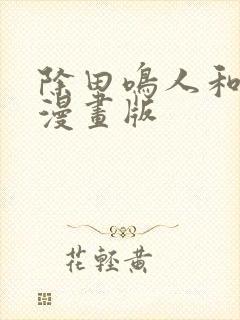 除田鳴人和
漫畫版
花輕黄